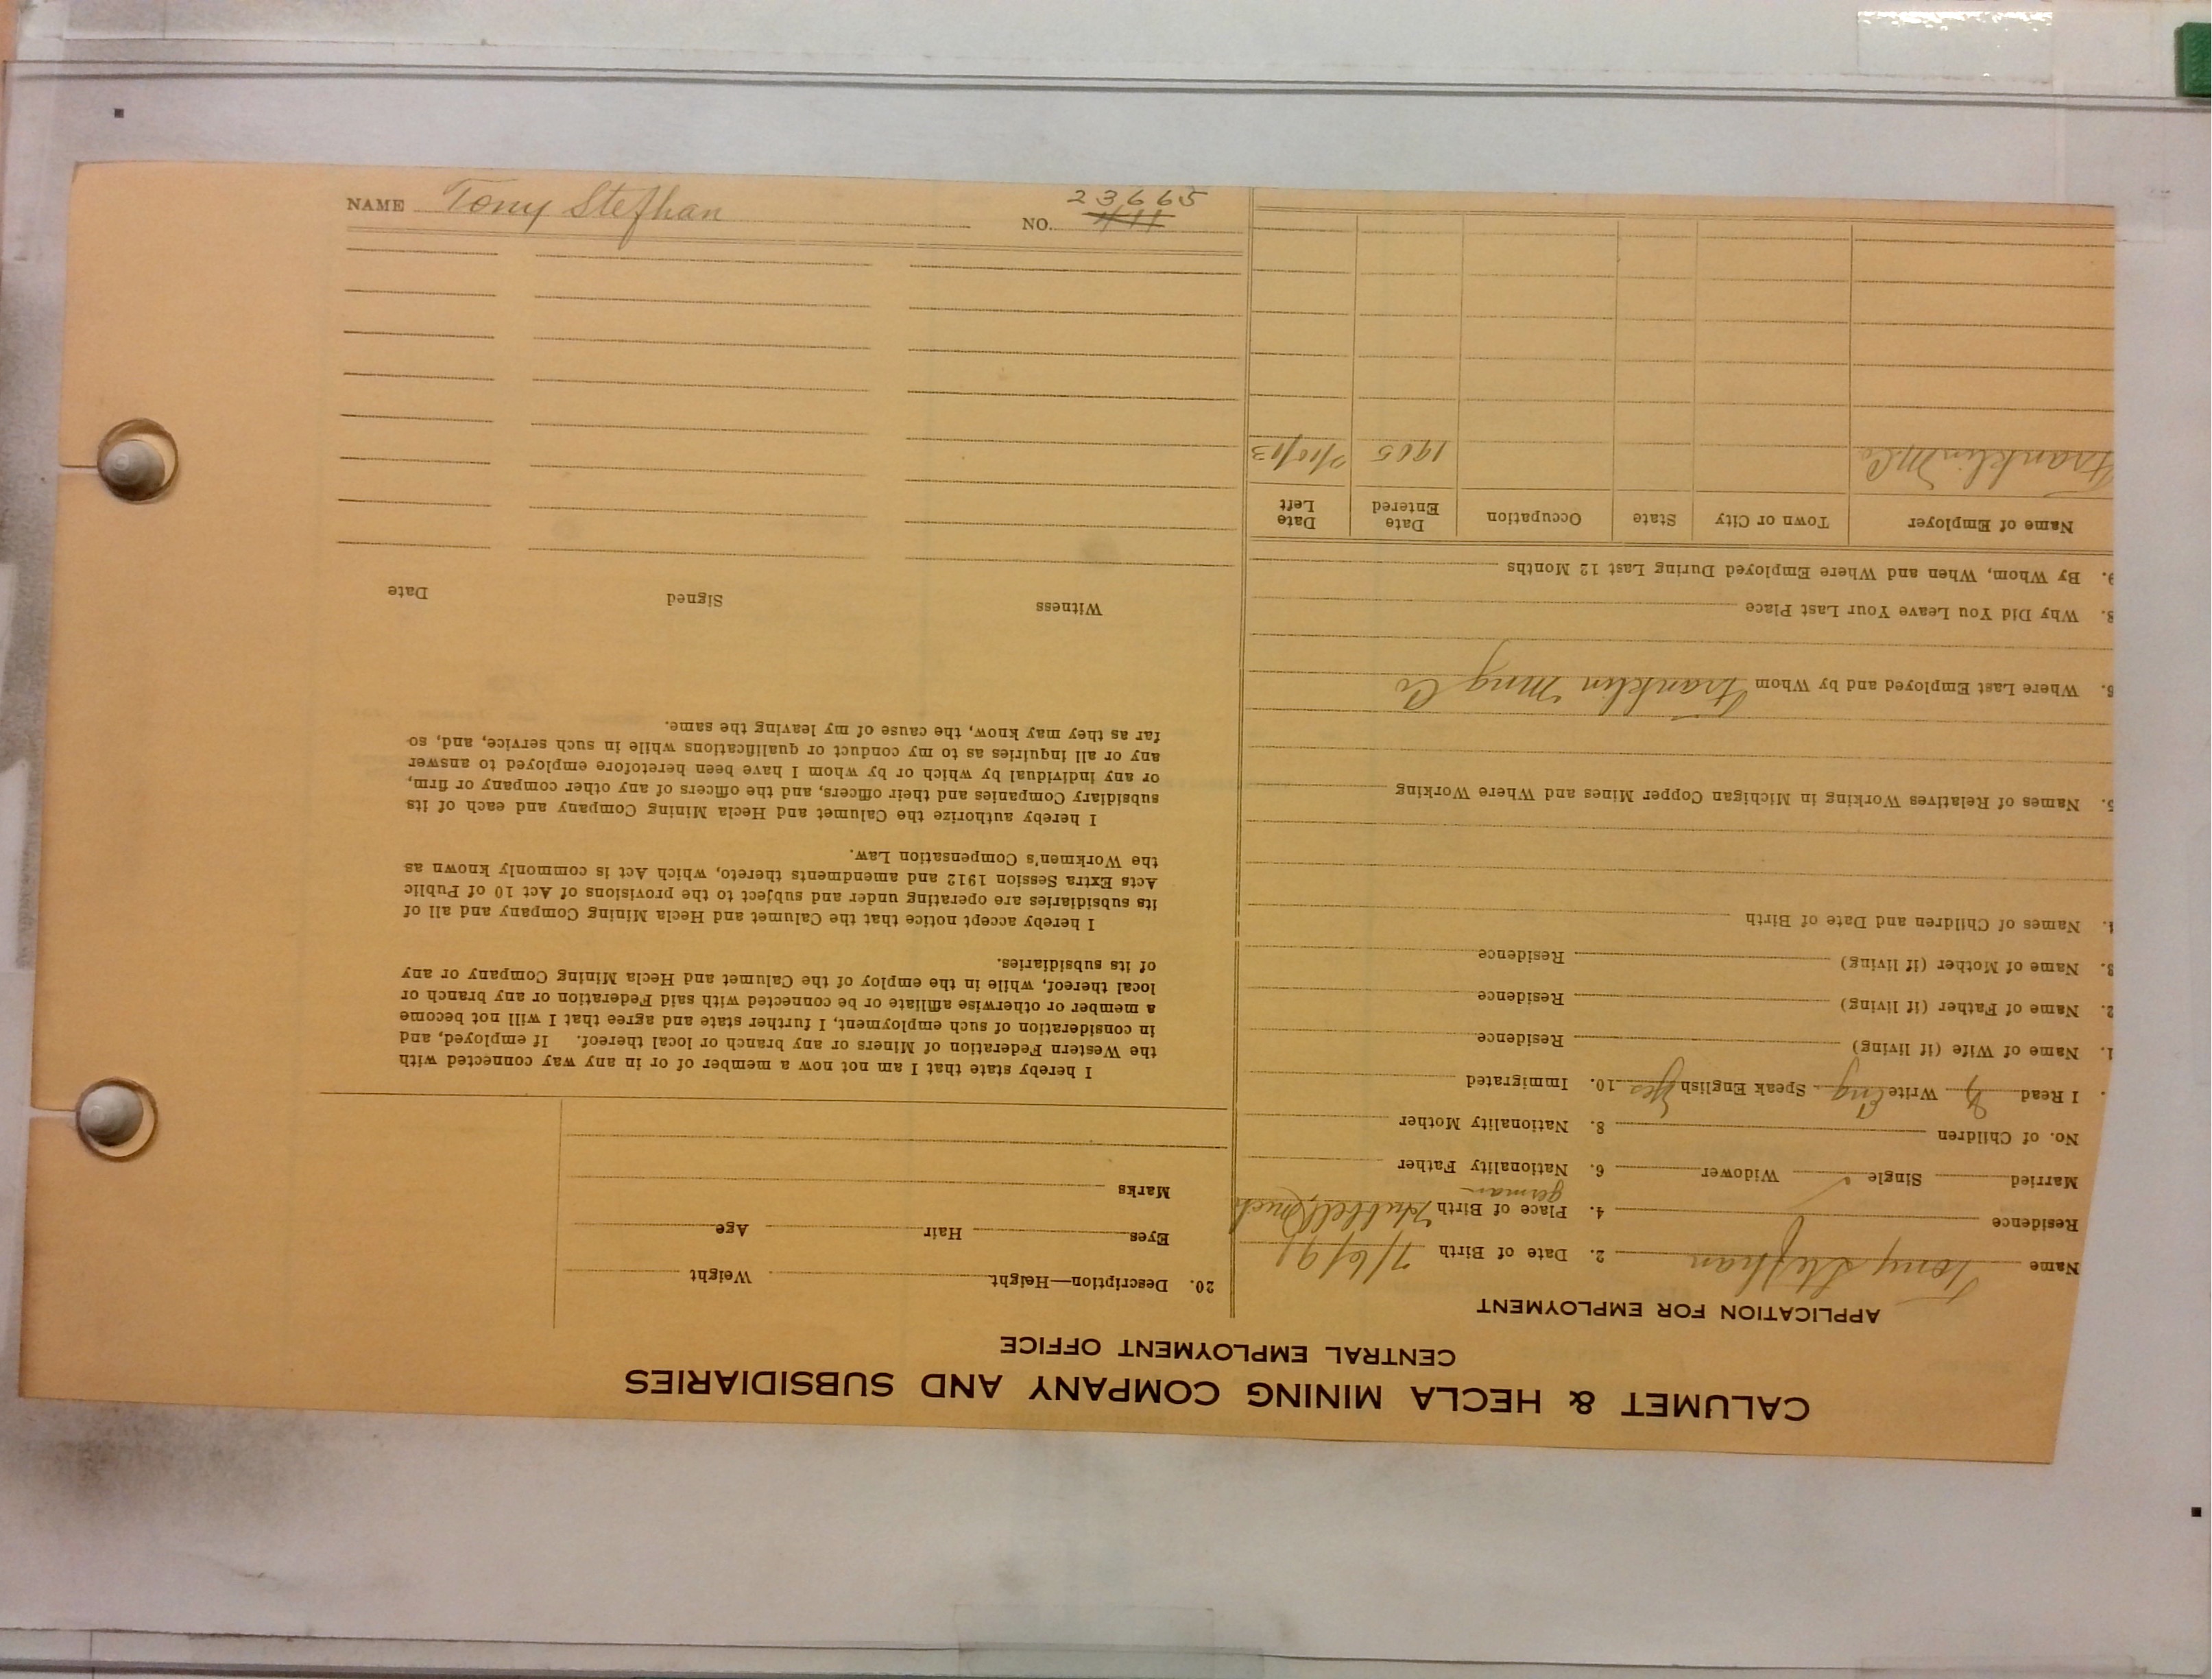 NAME Tony Stephan NO. 23665
CALUMET & HECLA MINING COMPANY AND SUBSIDIARIES
CENTRAL EMPLOYMENT OFFICE
APPLICATION FOR EMPLOYMENT
Name Tony Stephan 2. Date of Birth 7/6/91
Residence 4. Place of Birth Hubbell, Mich
german
Married Single ✓ Widower 6. Nationality Father
No. of Children 8. Nationality Mother
. I Read Write Eng Speak English Yes 10. Immigrated
1. Name of Wife (if living) Residence
2. Name of Father (if living) Residence
3. Name of Mother (if living) Residence
4. Names of Children and Date of Birth
5. Names of Relatives Working in Michigan Copper Mines and Where Working
6. Where Last Employed and by Whom Franklin Mng Co
8. Why Did You Leave Your Last Place
9. By Whom, When and Where Employed During Last 12 Months
Name of Employer Town or City State Occupation Date Entered Date Left
Franklin M Co 1905 /10/13
20. Description—Height Weight
Eyes Hair Age
Marks
I hereby state that I am not now a member of or in any way connected with
the Western Federation of Miners or any branch or local thereof. If employed, and
in consideration of such employment, I further state and agree that I will not become
a member or otherwise affiliate or be connected with said Federation or any branch or
local thereof, while in the employ of the Calumet and Hecla Mining Company or any
of its subsidiaries.
I hereby accept notice that the Calumet and Hecla Mining Company and all of
its subsidiaries are operating under and subject to the provisions of Act 10 of Public
Acts Extra Session 1912 and amendments thereto, which Act is commonly known as
the Workmen's Compensation Law.
I hereby authorize the Calumet and Hecla Mining Company and each of its
subsidiary Companies and their officers, and the officers of any other company or firm,
or any individual by which or by whom I have been heretofore employed to answer
any or all inquiries as to my conduct or qualifications while in such service, and, so
far as they may know, the cause of my leaving the same.
Witness Signed Date